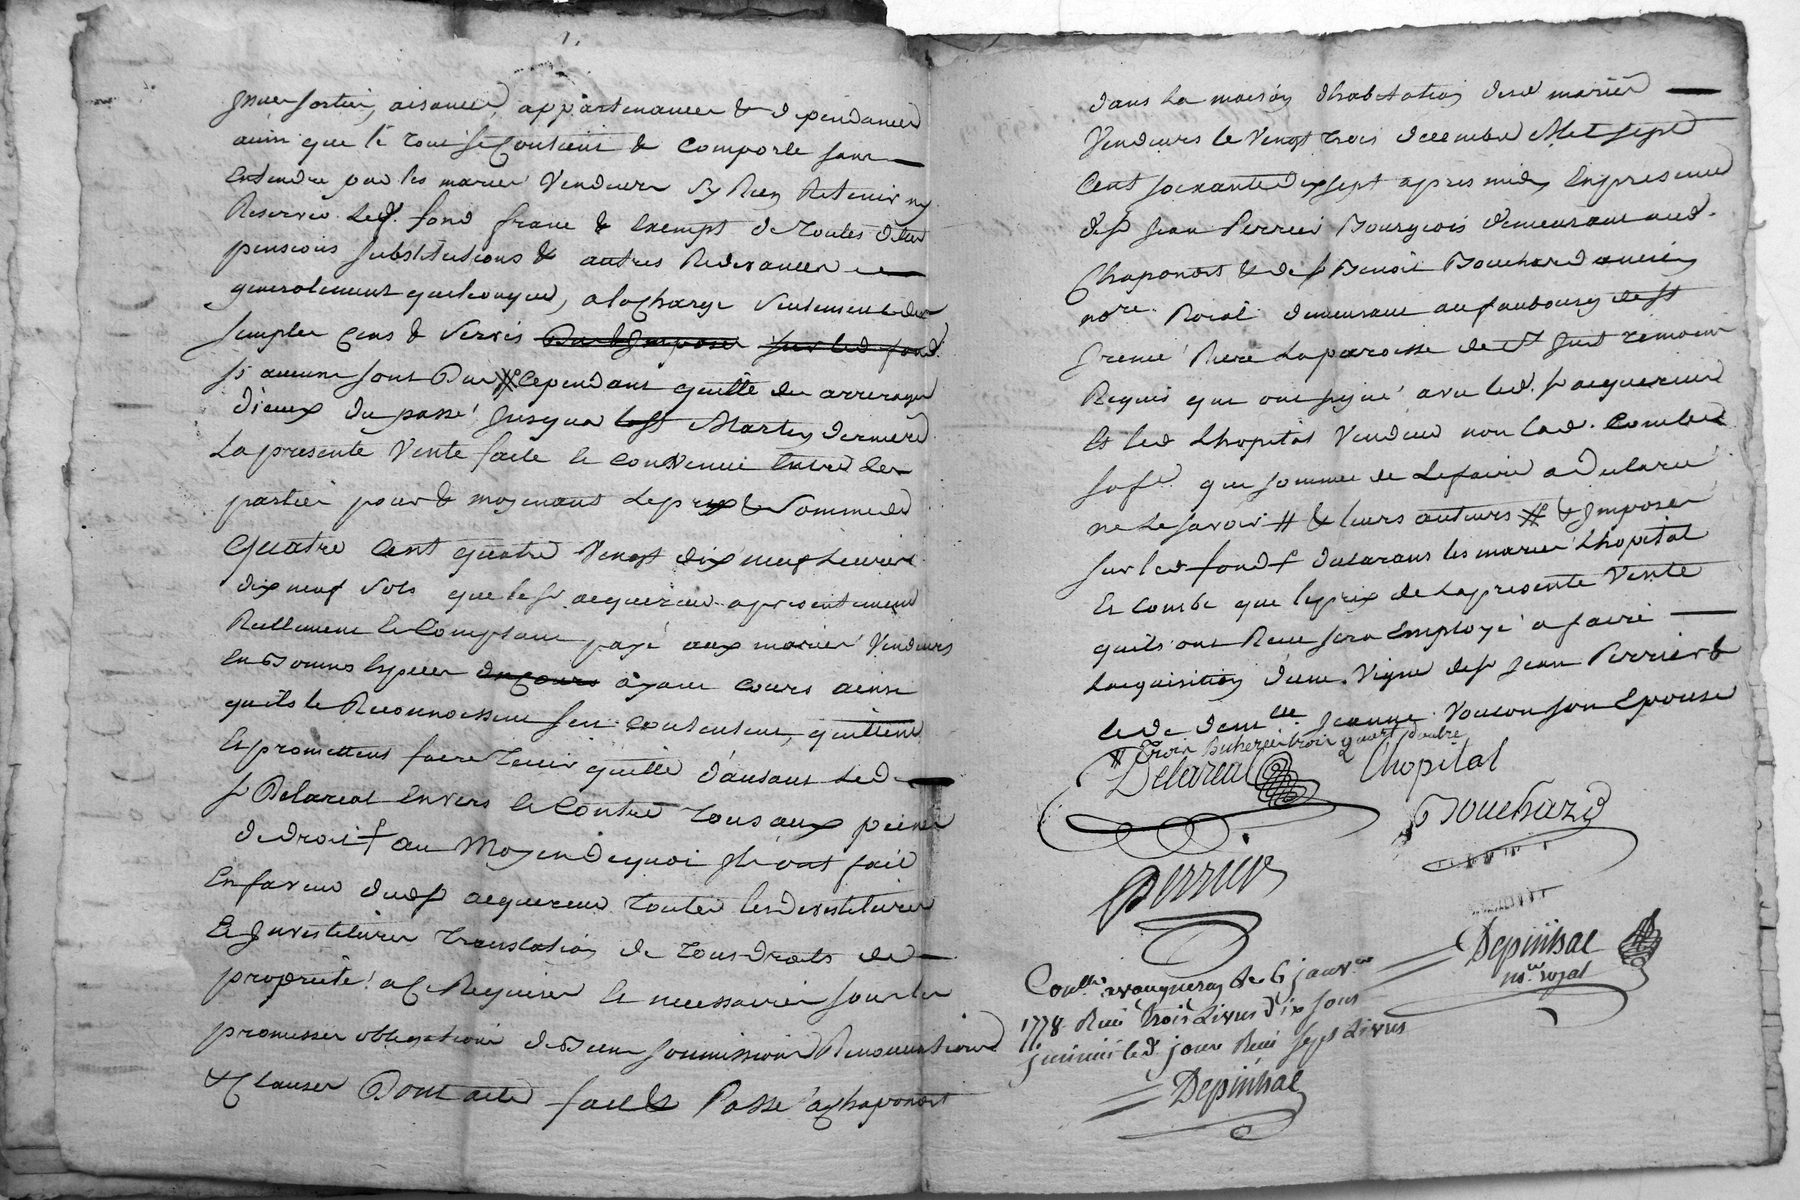 sortier, aisances, appartenances & dependances
ainsi que le tout se contient & comporte sans
Entendre par les mariés Vendeurs sy Rien Retenir ny
Reserver. Led. fond franc & exempt de toutes dettes
pensions substitutions & autres Redevances
generalement quelconques, a la charge seulement des
simples cens & servis
sy aucuns sont Dus # cependant quitte des arrerages
d'iceux du passé jusqua la St Martin derniere
La presente Vente faite & convenue entre les
parties pour & moyenant le prix & somme de
quatre cent quatre vingt dix neuf Livres
dix neuf sols que le sr acquereur a presentement
Reellement & comptant payé aux mariés Vendeurs
en bonnes especes en cours ayant cours ainsi
quils le Reconnoissent s'en contentent, quittent
& promettent faire tenir quitte d'autant led.
sr Delareal Envers & Contre tous aux peines
de droit + au Moyen dequoi ils ont fait
En faveur dud sr acquereur toutes les devestitures
& Investitures translation de tous droits de
propriété! a ce Requises & necessaires sous les
promesses obligations de biens soumissions Renonciations
& Clauses Dont acte fait & Passé a Chaponost
dans la maison d'habitation desd mariés
Vendeurs le vingt trois decembre Mil sept
Cent soixante dix sept apres midy en presence
de sr Jean Perrier Bourgeois demeurant aud.
Chaponost & de sr Benoit Bouchard ancien
nore. Roial demeurant au faubourg de St
Irenée Riere la paroisse de St Just temoins
Requis qui ont signé avec led. sr acquereur
& led Lhopital Vendeur non lad. Combe
sa fe. que sommée de le faire a Declaré
ne le savoir # & leurs auteurs # & imposés
sur led fond + declarans les mariés Lhopital
& Combe que le prix de la presente Vente
quils ont Receu sera Employé a faire
Lacquisition d'une Vigne de sr Jean Perrier &
de demlle Jeanne Voulon son Epouse
# trois trois quart
Delareal Lhopital
Bouchard
Perrier
Depinhac
nore. royal
Conlle a vaugneray le 6 janver
1778 Receu trois Livres dix sous
insinué led jour Receu sept Livres
Depinhac